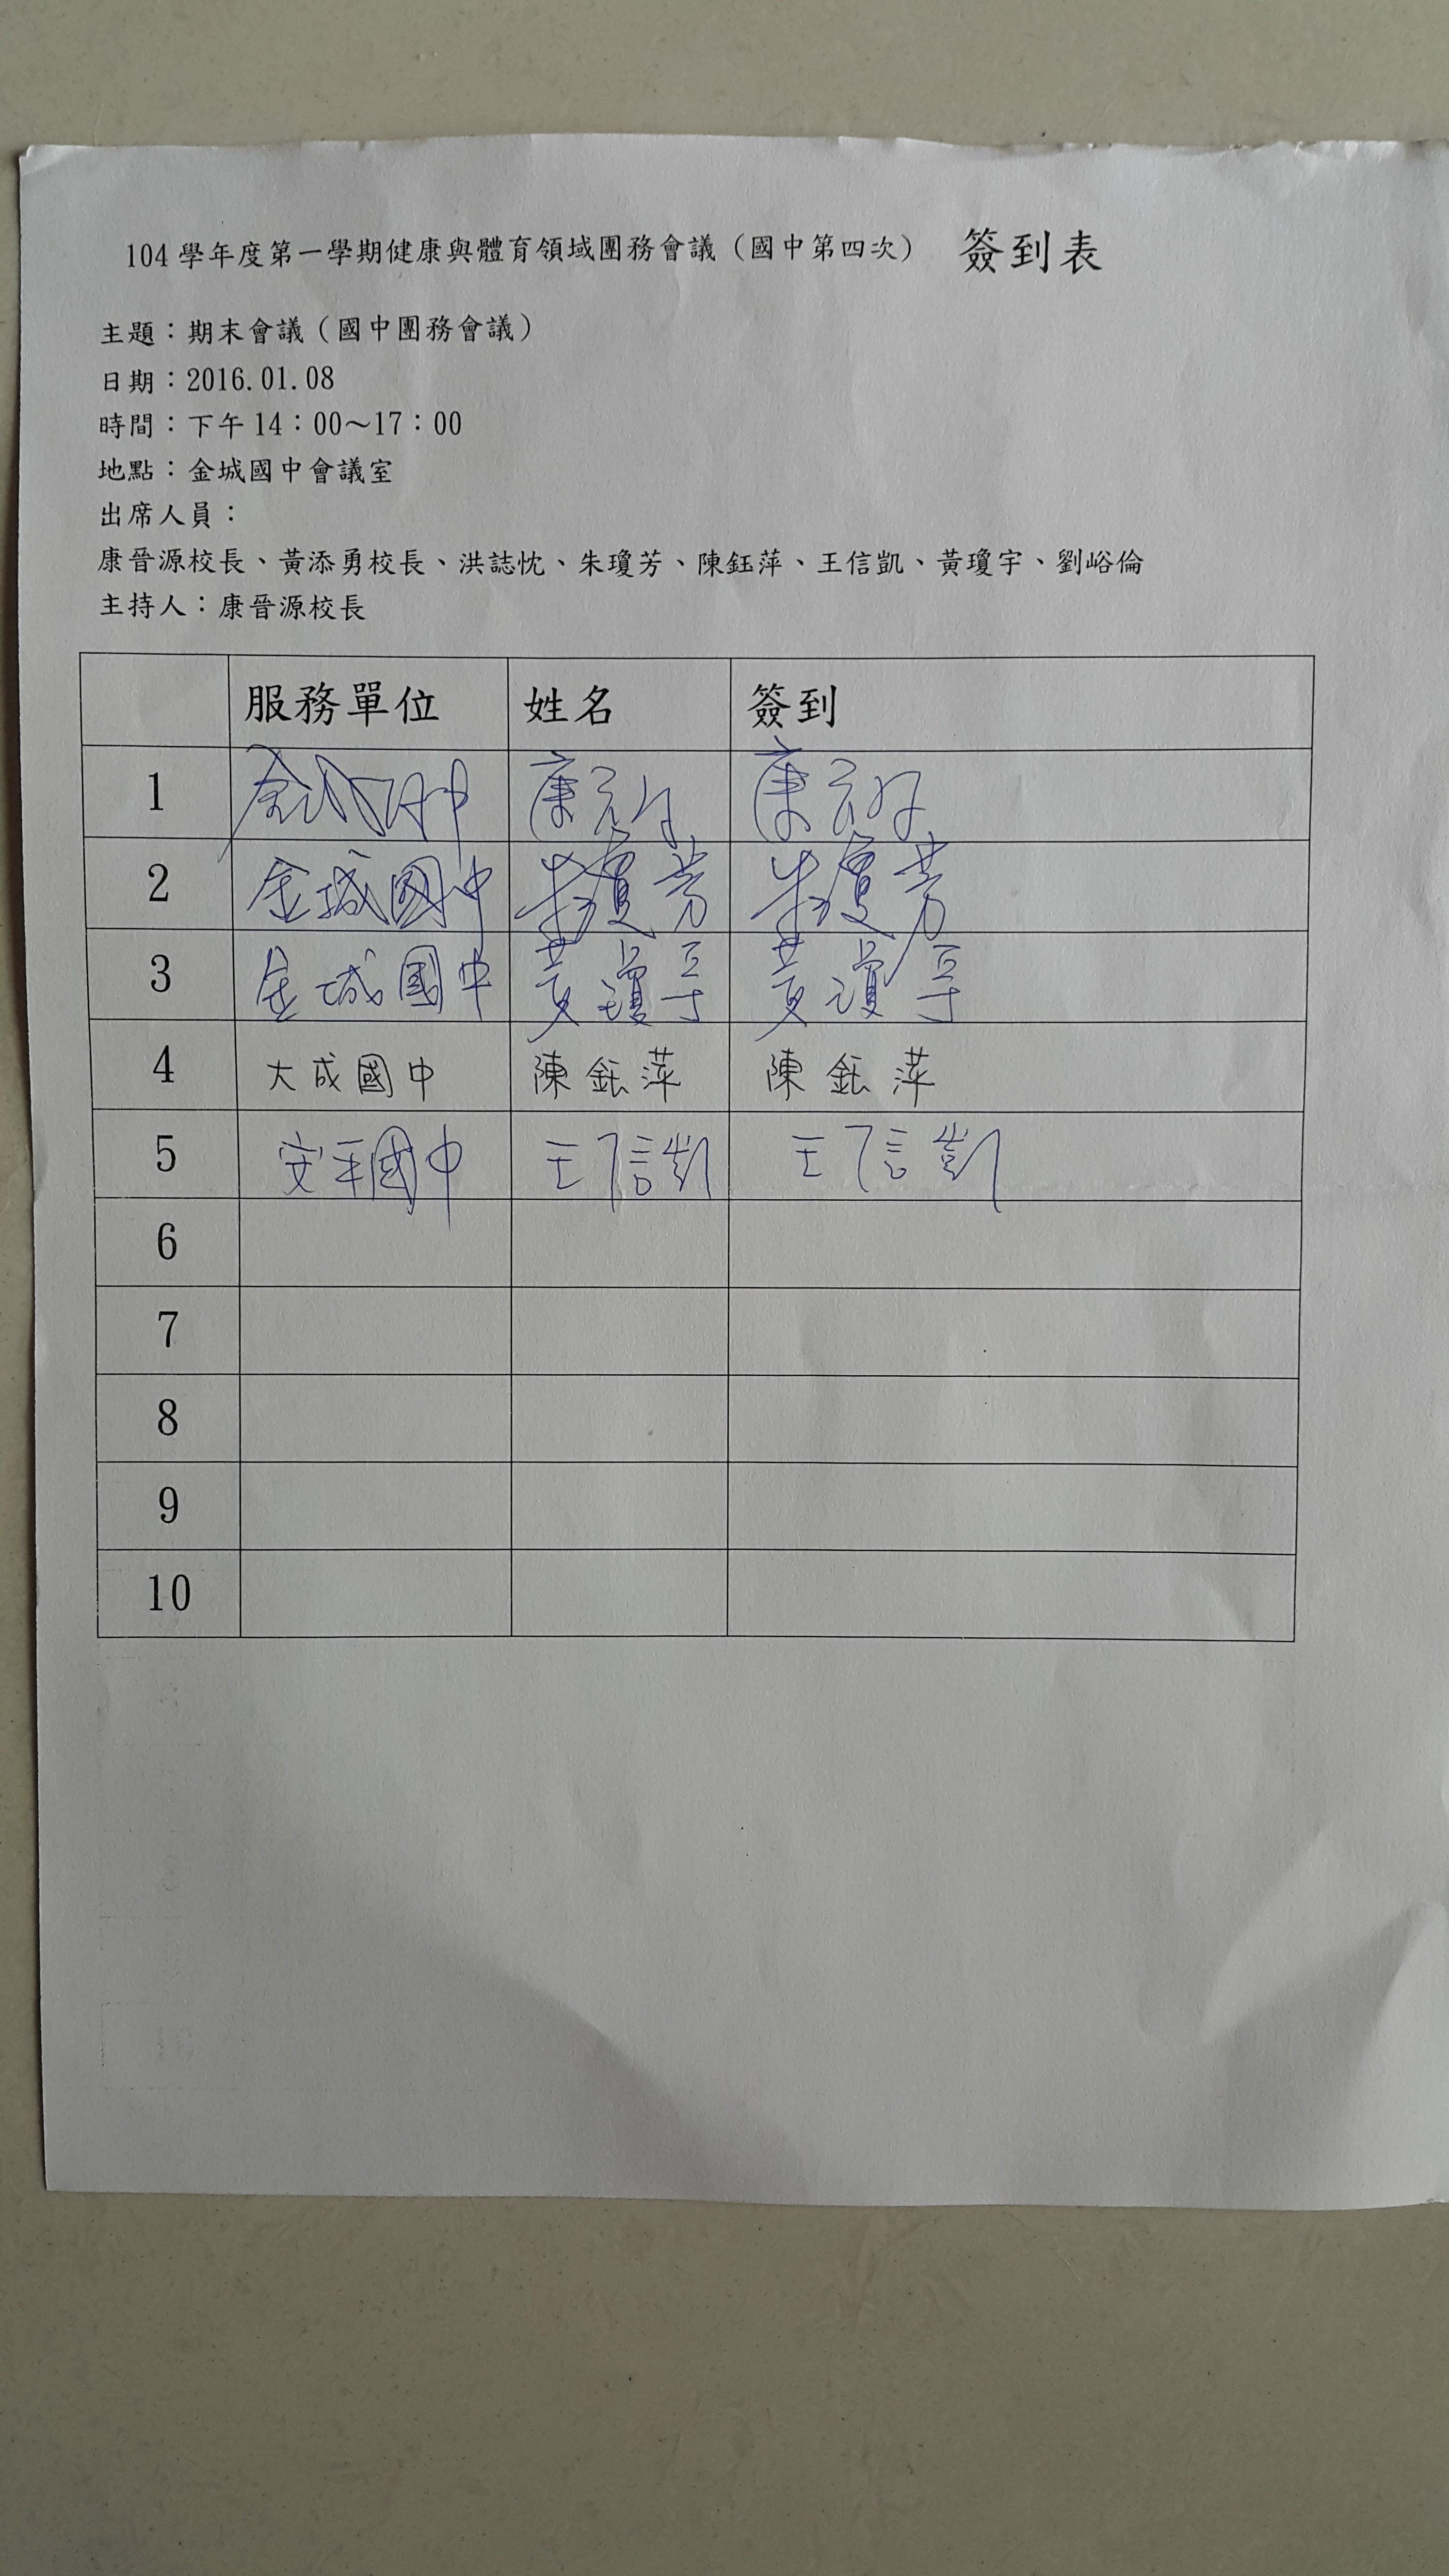 104 學年度第一學期健康與體育領域團務會議（國中第四次） 簽到表
主題：期末會議（國中團務會議）
日期：2016.01.08
時間：下午 14：00～17：00
地點：金城國中會議室
出席人員：
康晉源校長、黃添勇校長、洪誌忱、朱瓊芳、陳鈺萍、王信凱、黃瓊宇、劉峪倫
主持人：康晉源校長
服務單位 姓名 簽到
1 金城國中 康
2 金城國中 朱瓊芳 朱瓊芳
3 金城國中 黃瓊宇 黃瓊宇
4 大成國中 陳鈺萍 陳鈺萍
5 安平國中 王信凱 王信凱
6
7
8
9
10